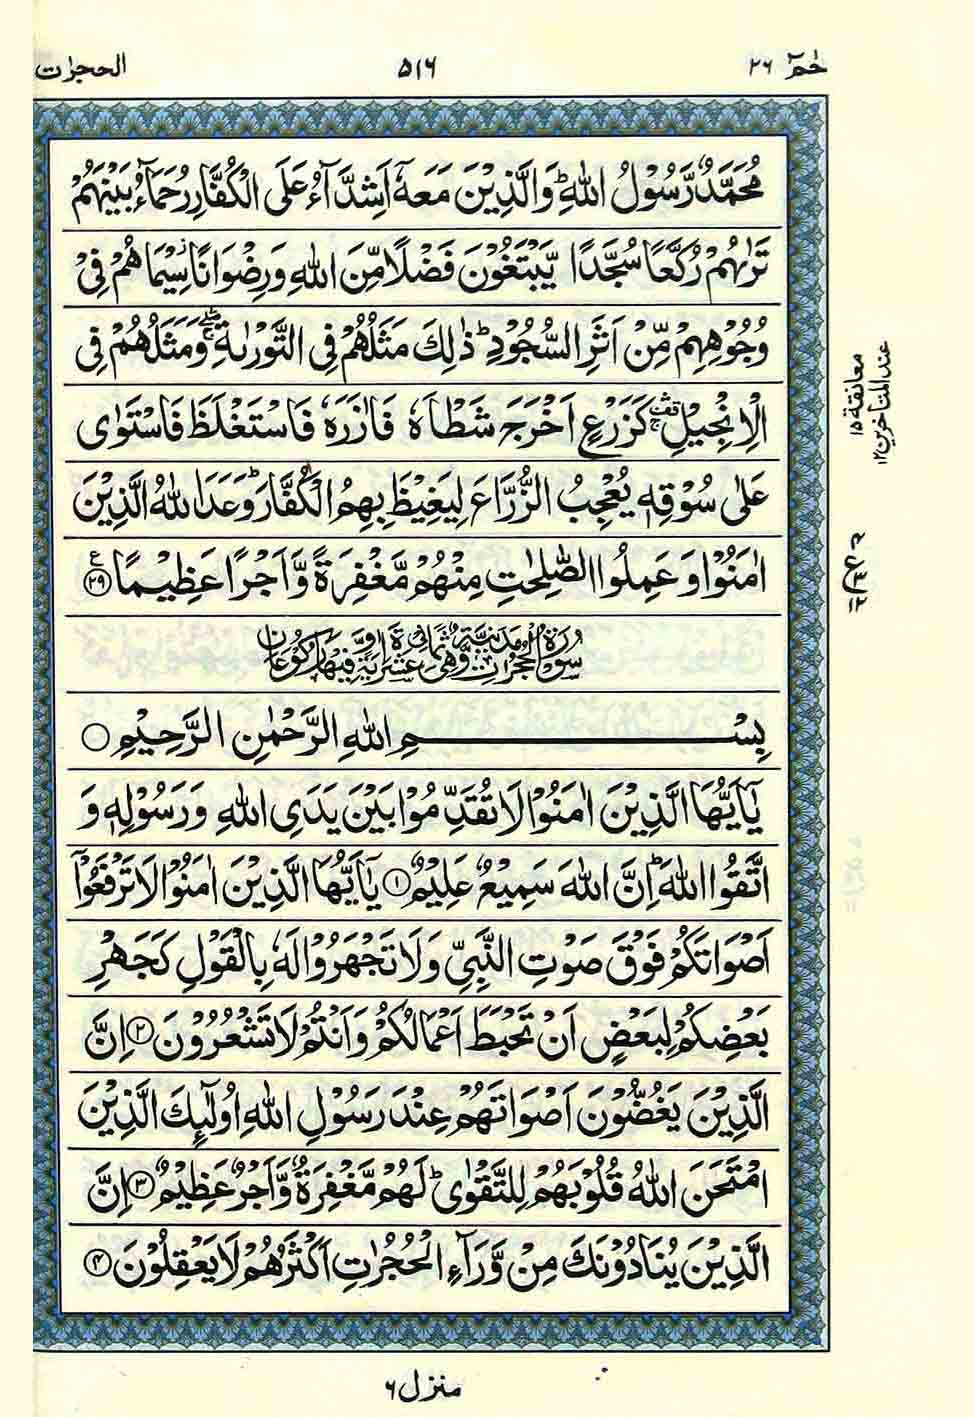 حٰمٓ ٢٦
٥١٦
الحجرٰت
مُحَمَّدٌ رَّسُوْلُ اللّٰهِ ؕ وَالَّذِيْنَ مَعَهٗۤ اَشِدَّآءُ عَلَى الْكُفَّارِ رُحَمَآءُ بَيْنَهُمْ
تَرٰىهُمْ رُكَّعًا سُجَّدًا يَّبْتَغُوْنَ فَضْلًا مِّنَ اللّٰهِ وَرِضْوَانًا ؗ سِيْمَاهُمْ فِيْ
وُجُوْهِهِمْ مِّنْ اَثَرِ السُّجُوْدِ ؕ ذٰلِكَ مَثَلُهُمْ فِي التَّوْرٰىةِ ۛۖۚ وَمَثَلُهُمْ فِي
الْاِنْجِيْلِ ۛ۫ۚ كَزَرْعٍ اَخْرَجَ شَطْاَهٗ فَاٰزَرَهٗ فَاسْتَغْلَظَ فَاسْتَوٰى
عَلٰى سُوْقِهٖ يُعْجِبُ الزُّرَّاعَ لِيَغِيْظَ بِهِمُ الْكُفَّارَ ؕ وَعَدَ اللّٰهُ الَّذِيْنَ
اٰمَنُوْا وَعَمِلُوا الصّٰلِحٰتِ مِنْهُمْ مَّغْفِرَةً وَّاَجْرًا عَظِيْمًا ع ٢٩
سُوْرَةُ الْحُجُرٰتِ مَدَنِيَّةٌ وَّهِيَ ثَمَانِيَ عَشْرَةَ اٰيَةً وَّفِيْهَا رُكُوْعَانِ
بِسْمِ اللّٰهِ الرَّحْمٰنِ الرَّحِيْمِ ○
يٰۤاَيُّهَا الَّذِيْنَ اٰمَنُوْا لَا تُقَدِّمُوْا بَيْنَ يَدَيِ اللّٰهِ وَرَسُوْلِهٖ وَ
اتَّقُوا اللّٰهَ ؕ اِنَّ اللّٰهَ سَمِيْعٌ عَلِيْمٌ ١ يٰۤاَيُّهَا الَّذِيْنَ اٰمَنُوْا لَا تَرْفَعُوْۤا
اَصْوَاتَكُمْ فَوْقَ صَوْتِ النَّبِيِّ وَلَا تَجْهَرُوْا لَهٗ بِالْقَوْلِ كَجَهْرِ
بَعْضِكُمْ لِبَعْضٍ اَنْ تَحْبَطَ اَعْمَالُكُمْ وَاَنْتُمْ لَا تَشْعُرُوْنَ ٢ اِنَّ
الَّذِيْنَ يَغُضُّوْنَ اَصْوَاتَهُمْ عِنْدَ رَسُوْلِ اللّٰهِ اُولٰٓئِكَ الَّذِيْنَ
امْتَحَنَ اللّٰهُ قُلُوْبَهُمْ لِلتَّقْوٰى ؕ لَهُمْ مَّغْفِرَةٌ وَّاَجْرٌ عَظِيْمٌ ٣ اِنَّ
الَّذِيْنَ يُنَادُوْنَكَ مِنْ وَّرَآءِ الْحُجُرٰتِ اَكْثَرُهُمْ لَا يَعْقِلُوْنَ ٤
معانقة ١٥
عند المتاخرين ١٢
منزل ٦